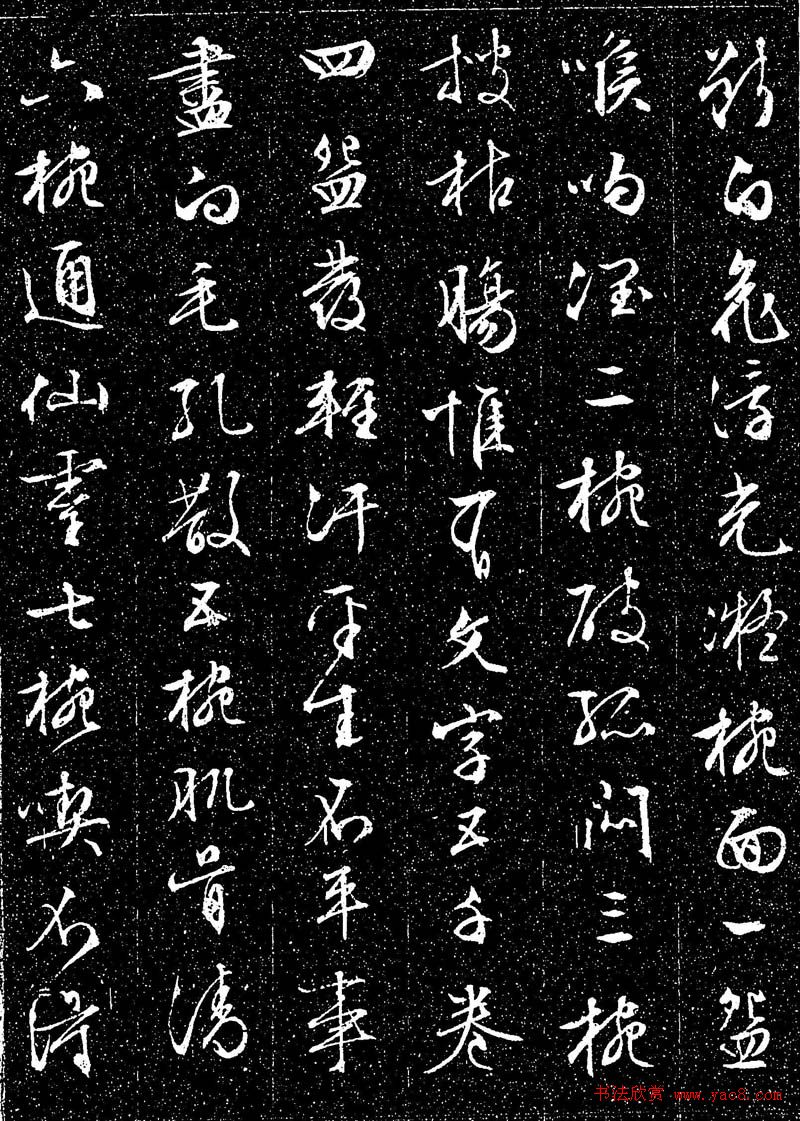 斷白花浮光凝椀面一盌
喉吻二椀破孤悶三椀
搜枯腸惟有文字五千卷
四盌發輕汗平生不平事
盡向毛孔散五椀肌骨清
六椀通仙靈七椀喫不得
书法欣赏 www.yac8.com